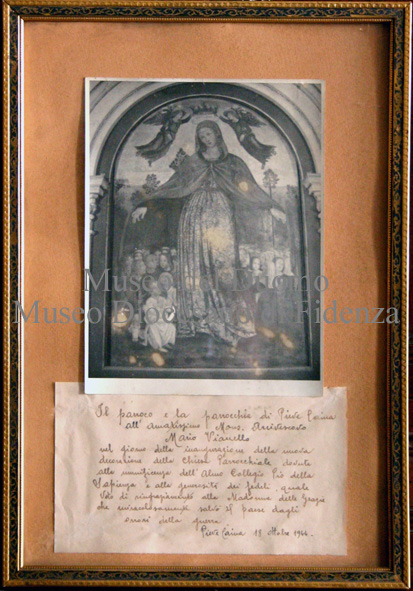 Museo del Duomo
Museo Diocesano di Fidenza
Il parroco e la parrocchia di Pieve Caina
all'amatissimo Mons. Arcivescovo
Mario Vianello
nel giorno della inaugurazione della nuova
decorazione della Chiesa Parrocchiale dovuta
alla munificenza dell'Almo Collegio Pio della
Sapienza e alla generosità dei fedeli, quale
Voto di ringraziamento alla Madonna delle Grazie
che miracolosamente salvò il paese dagli
orrori della guerra.
Pieve Caina 15 ottobre 1944.